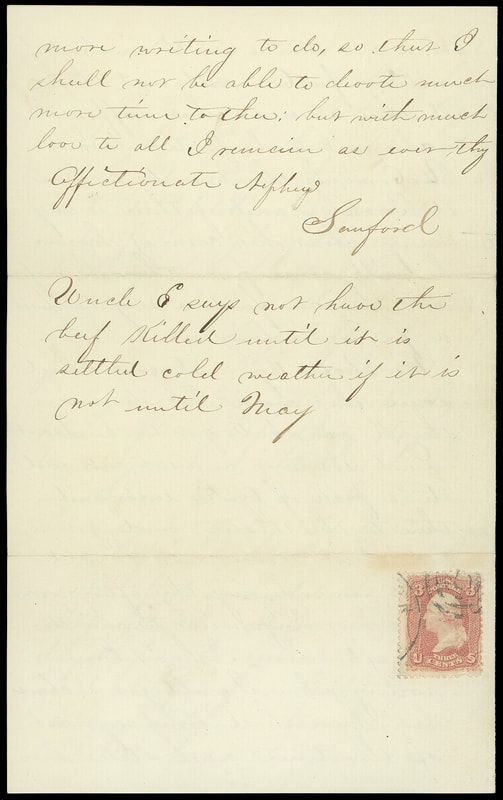 more writing to do, so that I
shall not be able to devote much
more time to thee; but with much
love to all I remain as ever thy
affectionate Nephew
Sanford
Uncle E says not have the
beef killed until it is
settled cold weather if it is
not until May
3 3
U S